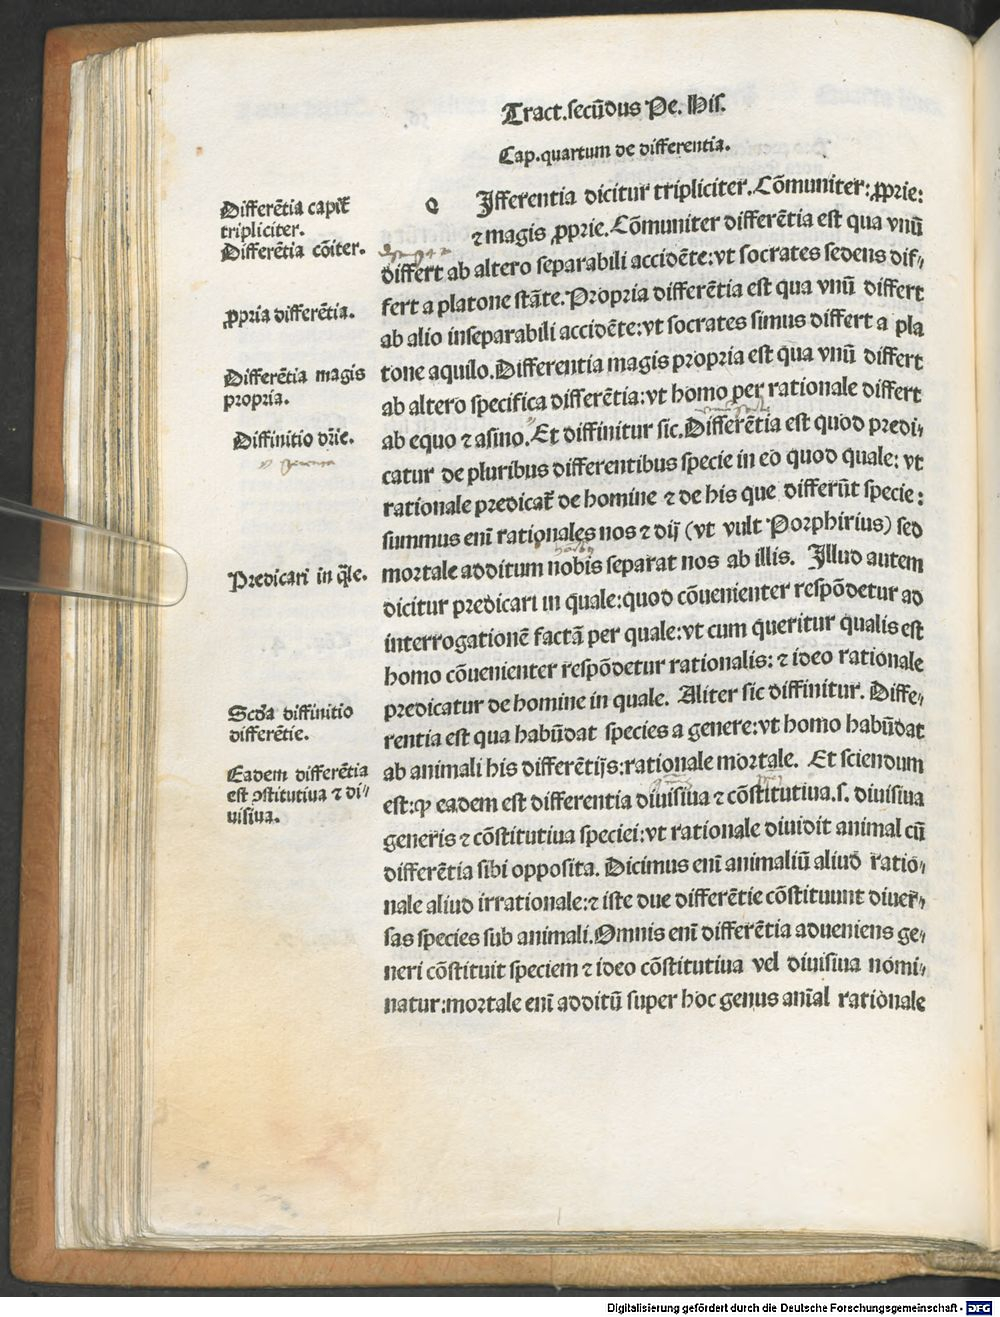 Tract.secūdus Pe. His.
Cap.quartum de differentia.
Differētia capiť
tripliciter.
Differētia cōiter.
ꝓpria differētia.
Differētia magis
propria.
Diffinitio drīe.
Predicari in q̄le.
Scďa diffinitio
differētie.
Eadem differētia
est ↄstitutiua ⁊ di-
uisiua.
d Ifferentia dicitur tripliciter.Cōmuniter:ꝓprie:
⁊ magis ꝓprie.Cōmuniter differētia est qua vnū
differt ab altero separabili accidēte:vt socrates sedens dif-
fert a platone stāte.Propria differētia est qua vnū differt
ab alio inseparabili accidēte:vt socrates simus differt a pla
tone aquilo.Differentia magis propria est qua vnū differt
ab altero specifica differētia:vt homo per rationale differt
ab equo ⁊ asino.Et diffinitur sic.Differētia est quod predi-
catur de pluribus differentibus specie in eo quod quale: vt
rationale predicať de homine ⁊ de his que differūt specie:
summus enī rationales nos ⁊ dij (vt vult Porphirius) sed
mortale additum nobis separat nos ab illis. Illud autem
dicitur predicari in quale:quod cōuenienter respōdetur ad
interrogationē factā per quale:vt cum queritur qualis est
homo cōuenienter respōdetur rationalis: ⁊ ideo rationale
predicatur de homine in quale. Aliter sic diffinitur. Diffe-
rentia est qua habūdat species a genere:vt homo habūdat
ab animali his differētijs:rationale mortale. Et sciendum
est:ꝙ eadem est differentia diuisiua ⁊ cōstitutiua.s. diuisiua
generis ⁊ cōstitutiua speciei:vt rationale diuidit animal cū
differētia sibi opposita. Dicimus enī animaliū aliud ratio-
nale aliud irrationale:⁊ iste due differētie cōstituunt diuer-
sas species sub animali.Omnis enī differētia adueniens ge-
neri cōstituit speciem ⁊ ideo cōstitutiua vel diuisiua nomi-
natur:mortale enī additū super hoc genus anīal rationale
Digitalisierung gefördert durch die Deutsche Forschungsgemeinschaft - DFG